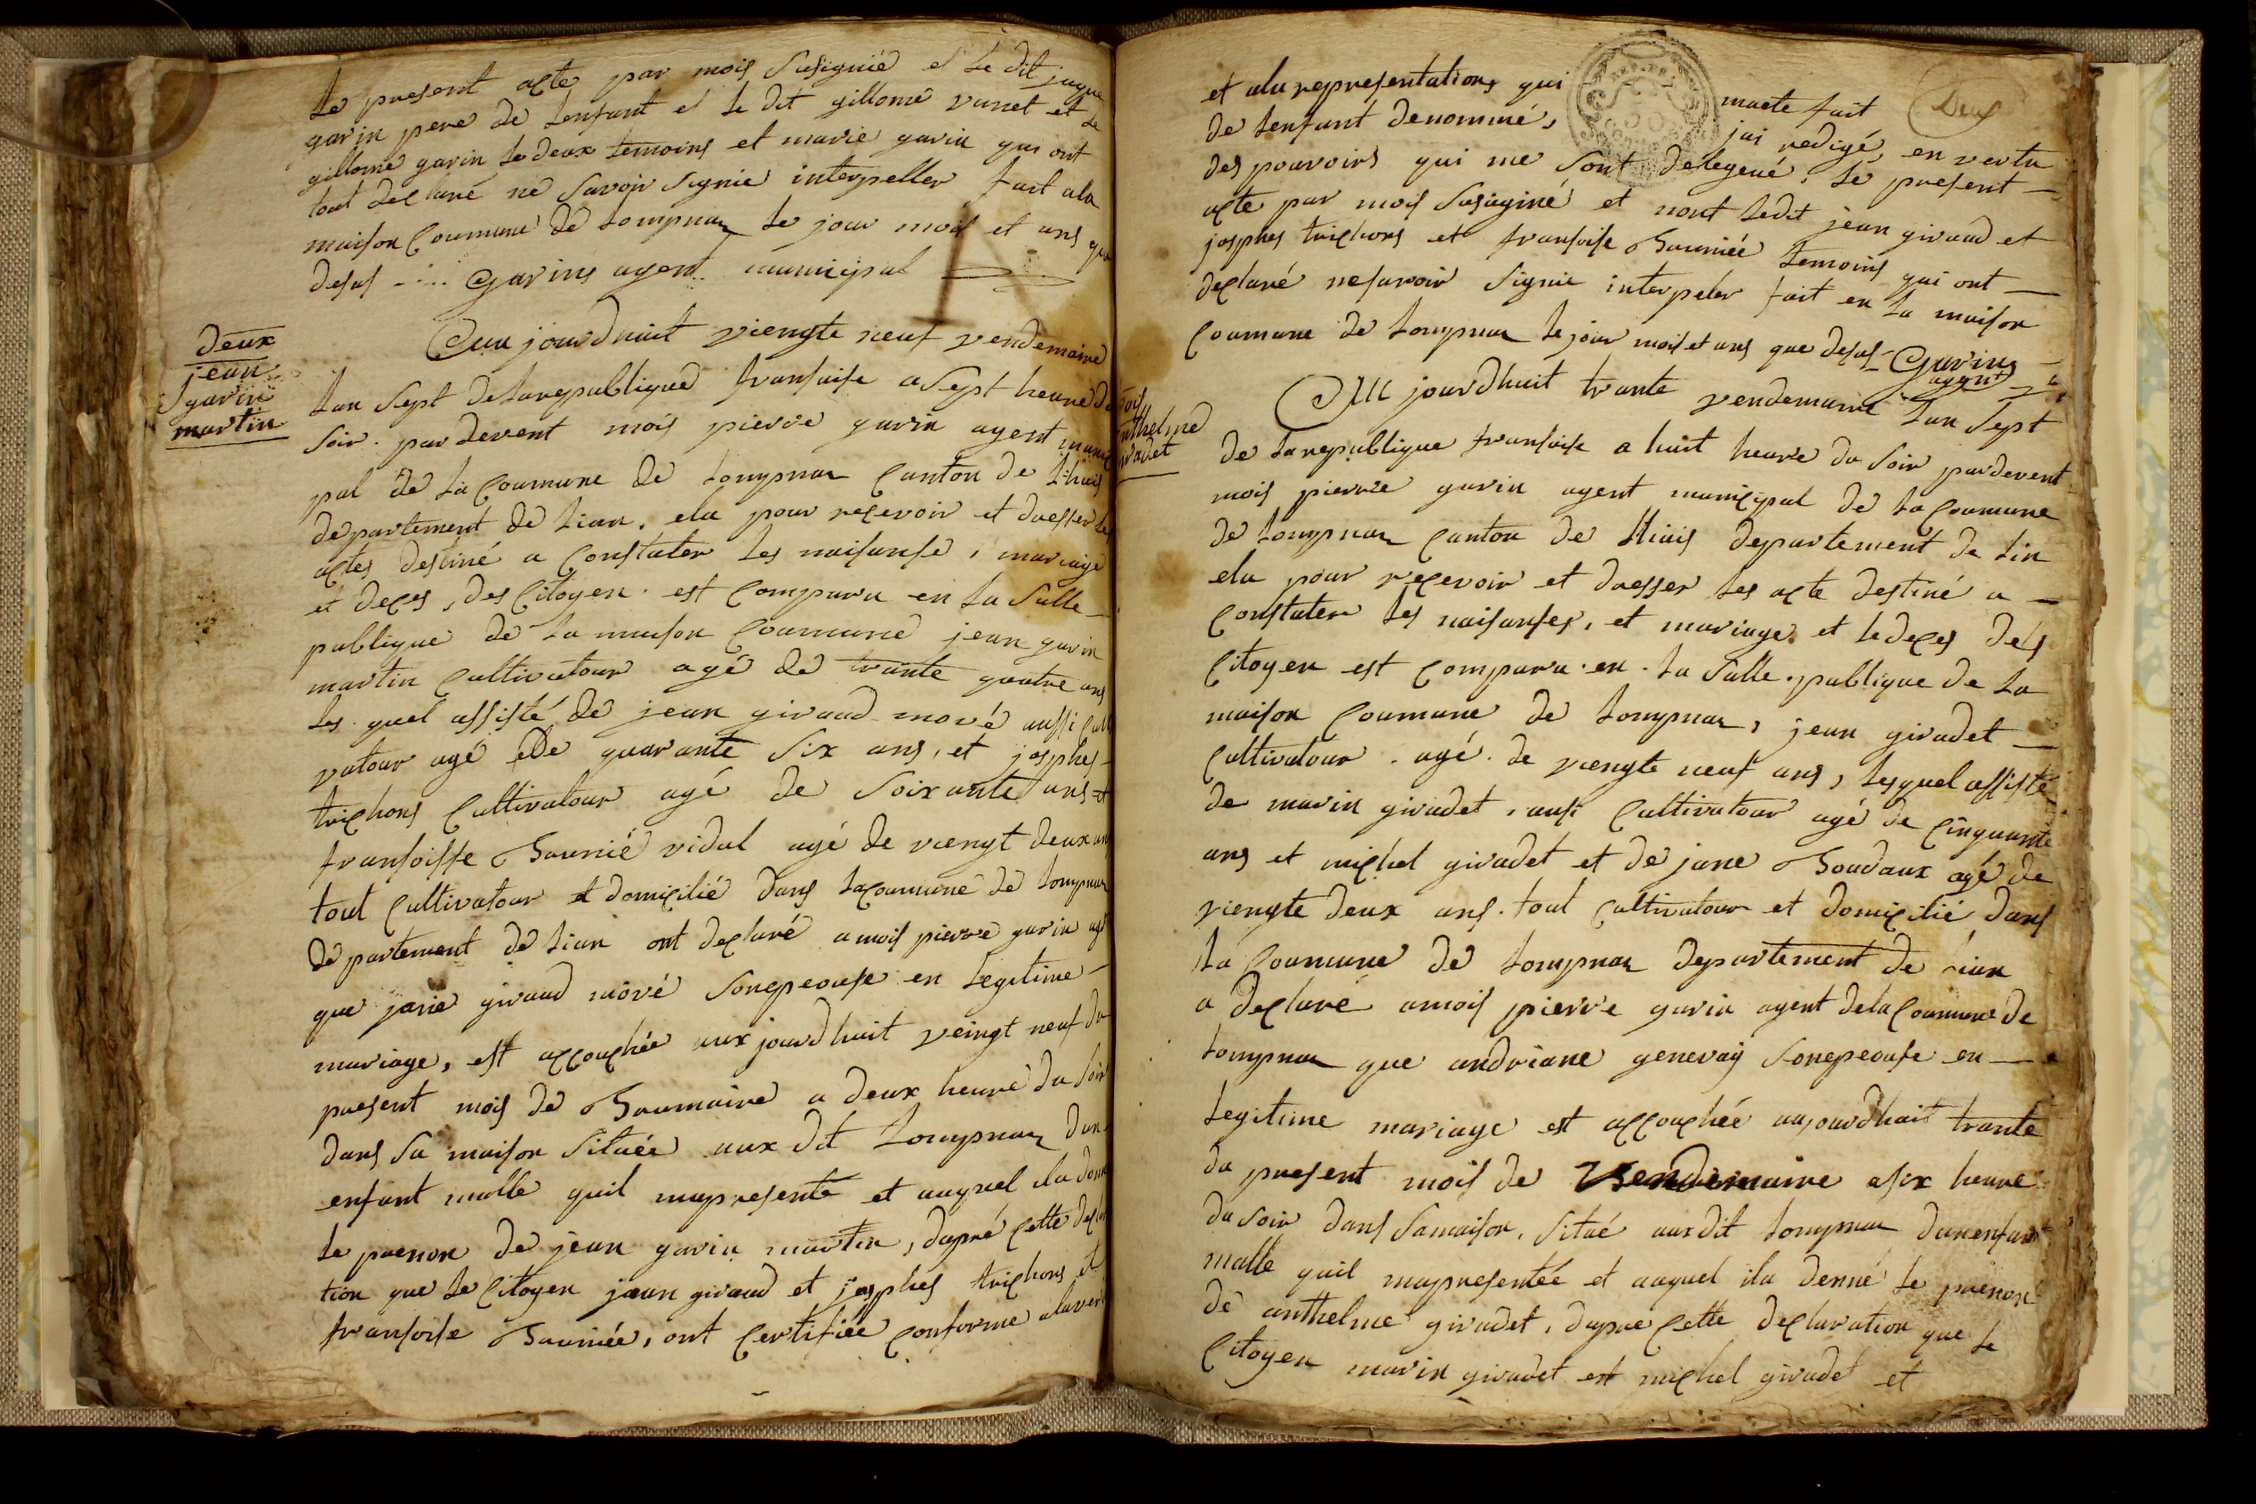 le present acte par mois susignié et le dit jaque
garin pere de lenfant et le dit gillome varnet et le
gillome garin le deux temoins et marie garin qui ont
tout declaré ne savoir signie interpeller fait ala
maison Coumune de Lompnar le jour mois et ans que
desus .... Garins agent municipal
deux
jean
garin
martin
Aux jourdhuit viengte neuf vendemaire
Lan sept de la republique fransaise a sept heure du
soir. par devent mois pierre garin agent munici
pal de la Coumune de Lompnar Canton de Lhuis
departement de Lian. elu pour recevoir et dresser les
actes destiné a Constater les naisanse, mariage
et deces, des Citoyen. est Comparu en la salle
publique de la maison Coumune jean garin
martin Cultivatour agé de trante quatre ans
les quel assisté de jean giraud moré aussi Culti
vatour agé de quarante six ans, et josphes
trichons Cultivatour agé de soixante ans et
fransoisse Baunié vidal agé de viengt deux ans
tout Cultivatour et domicilié dans la Coumune de Lompnar
departement de Lian ont declaré a mois pierre garin agt
que janie giraud moré sonepeouse en legitime
mariage, est accouchée aux jourdhuit veingt neuf du
present mois de Braumaire a deux heure du soir
dans sa maison située aux dit Lompnar dun
enfant malle quil mapresenté et auquel ila donné
le prenon de jean garin martin, dapré Cette decla
tion que le Citoyen jean giraud et josphes trichons et
fransoise Bauniée, ont Certifiée Conforme alaveri
et ala representations qui macte fait
Deux
de lenfant denommé, jai redigé, en vertu
des pouvoirs qui me sont delegeué, le present
acte par mois susiginé et nont ledit jean giraud et
josphes trichons et fransoise Bauniée temoins qui ont
declaré nesavoir signie interpeler fait en la maison
Coumune de Lompnar le jour mois et ans que desus Garins
agent
trois
anthelme
giradet
Au jourdhuit trante vendemaire Lan sept
de la republique fransaise a huit heure du soir pardevent
mois pierre garin agent municipal de la Coumune
de Lompnar Canton de Lhiuis departement de Lin
elu pour recevoir et dresser les acte destiné a
Constater les naisanses, et mariage et ledeces des
Citoyen est Comparu. en. la salle. publique de la
maison Coumune de Lompnar, jean giradet
Cultivatour. agé. de viengte neuf ans, lesquel assisté
de marin giradet, ausi Cultivatour agé de Cinquante
ans et michel giradet et de jane Boudaux agé de
viengte deux ans. tout Cultivatour et domicilié dans
la Coumune de Lompnar departement de Lian
a declaré amois pierre garin agent dela Coumune de
Lompnar que andriane genevay sonepeouse en
legitime mariage est accouchée aujourdhuit trante
du present mois de Vendemaire asix heure
du soir dans samaison, situé aux dit Lompnar dunenfant
malle quil mapresentée et auquel ila denné le prenon
de anthelme giradet, dapre Cette declaration que le
Citoyen marin giradet et michel giradet et